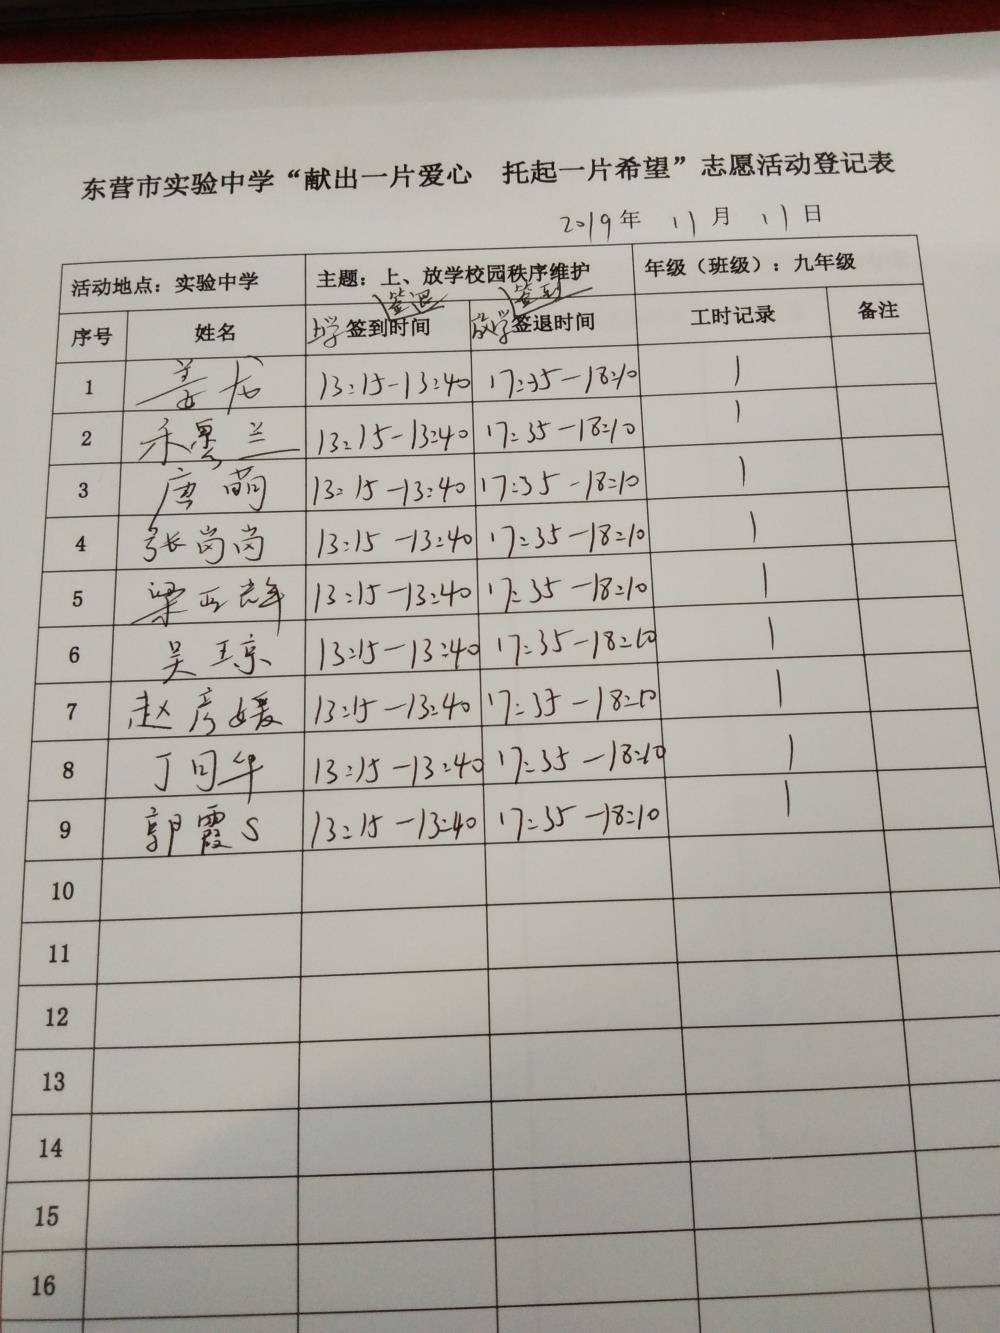 东营市实验中学“献出一片爱心 托起一片希望”志愿活动登记表
2019年 11月 11日
活动地点：实验中学 主题：上、放学校园秩序维护 年级（班级）：九年级
签退 签到
序号 姓名 上学签到时间 放学签退时间 工时记录 备注
1 13:15-13:40 17:35-18:10 1
2 兰 13:15-13:40 17:35-18:10 1
3 唐萌 13:15-13:40 17:35-18:10 1
4 张岗岗 13:15-13:40 17:35-18:10 1
5 梁 13:15-13:40 17:35-18:10 1
6 吴琼 13:15-13:40 17:35-18:10 1
7 赵彦媛 13:15-13:40 17:35-18:10 1
8 丁同华 13:15-13:40 17:35-18:10 1
9 郭霞S 13:15-13:40 17:35-18:10 1
10
11
12
13
14
15
16